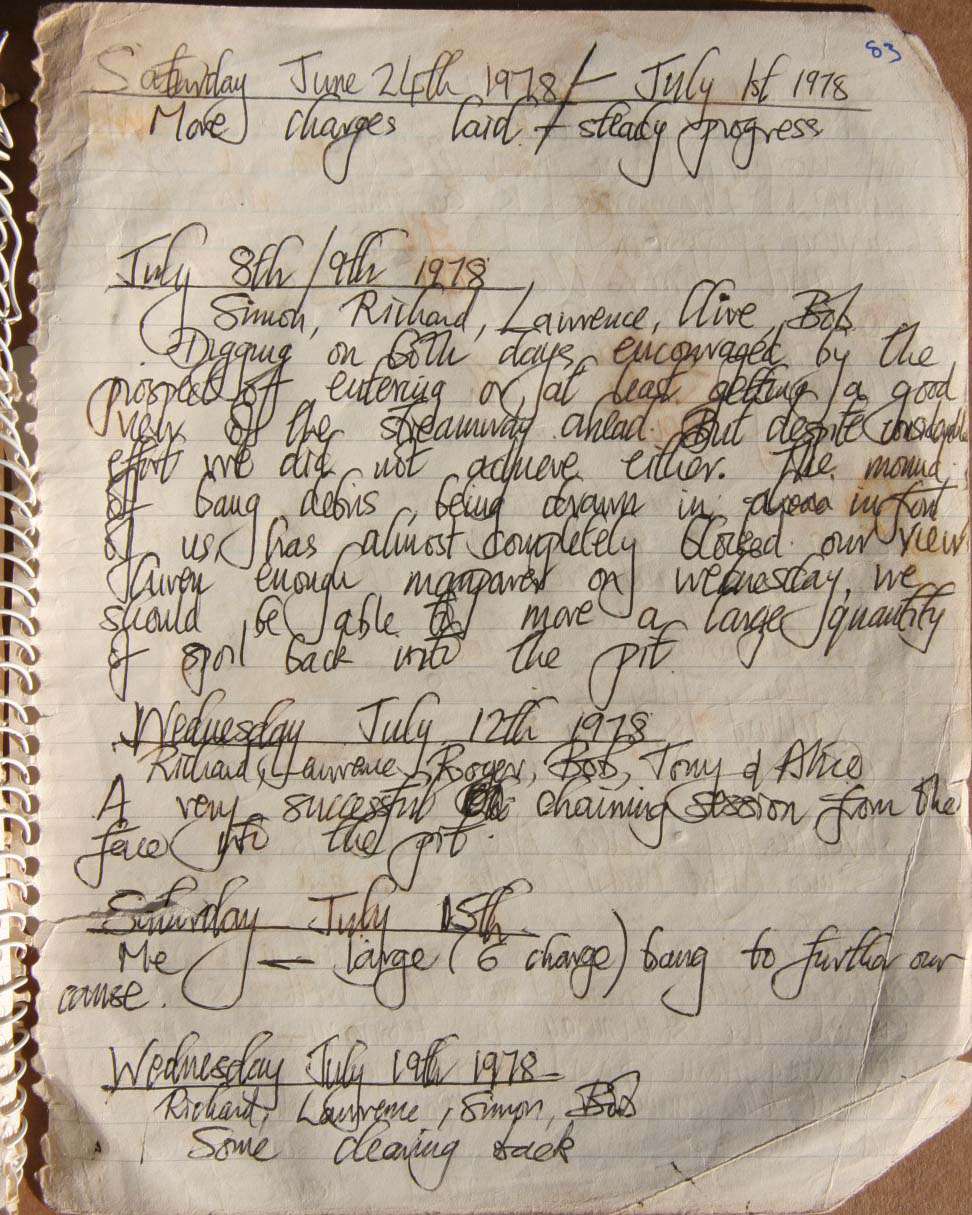 83
Saturday June 24th 1978 / - July 1st 1978
More charges laid + steady progress
July 8th /9th 1978
Simon, Richard, Lawrence, Clive, Bob
Digging on both days, encouraged by the
prospect of entering or, at least getting a good
view of the streamway ahead. But despite considerable
effort we did not achieve either. The mound
of bang debris, being drawn in in front
of us, has almost completely blocked our view
Given enough manpower on wednesday, we
should be able to move a large quantity
of spoil back into the pit.
Wednesday July 12th 1978
Richard, Lawrence, Roger, Bob, Tony & Alice
A very successful chaining session from the
face into the pit.
Saturday July 15th
Me - large (6 charge) bang to further our
cause.
Wednesday July 19th 1978
Richard, Lawrence, Simon, Bob
Some clearing back